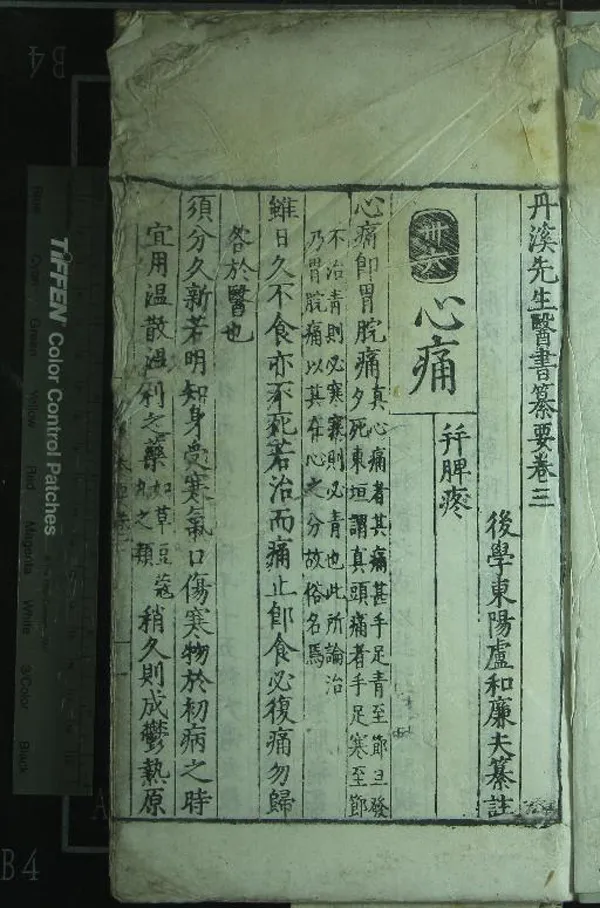 丹溪先生醫書纂要卷三
後學東陽盧和廉夫纂註
卅六 心痛 幷脾疼
心痛卽胃脘痛真心痛者其痛甚手足青至節旦發
夕死東垣謂真頭痛者手足寒至節
不治青則必寒寒則必青也此所論治
乃胃脘痛以其在心之分故俗名焉
雖日久不食亦不死若治而痛止卽食必復痛勿歸
咎於醫也
須分久新若明知身受寒氣口傷寒物於初病之時
宜用溫散溫利之藥如草豆蔻
丸之類稍久則成鬱熱原
TIFFEN Color Control Patches
Cyan
Green
Yellow
Red
Magenta
White
3/Color
Black
B4
B4